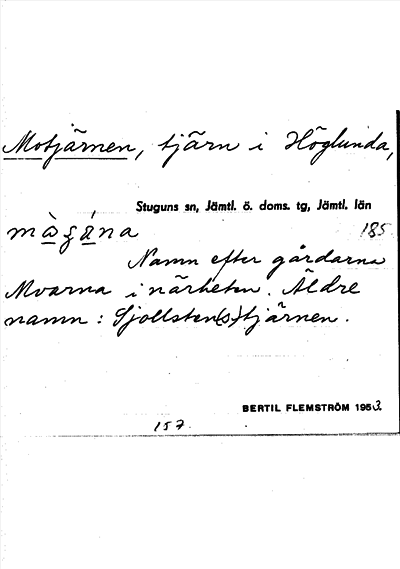 Motjärnen, tjärn i Höglunda,
Stuguns sn, Jämtl. ö. doms. tg, Jämtl. län
185
Namn efter gårdarna
Moarna i närheten. Äldre
namn: Sjollsten(s)tjärnen.
BERTIL FLEMSTRÖM 1953.
157